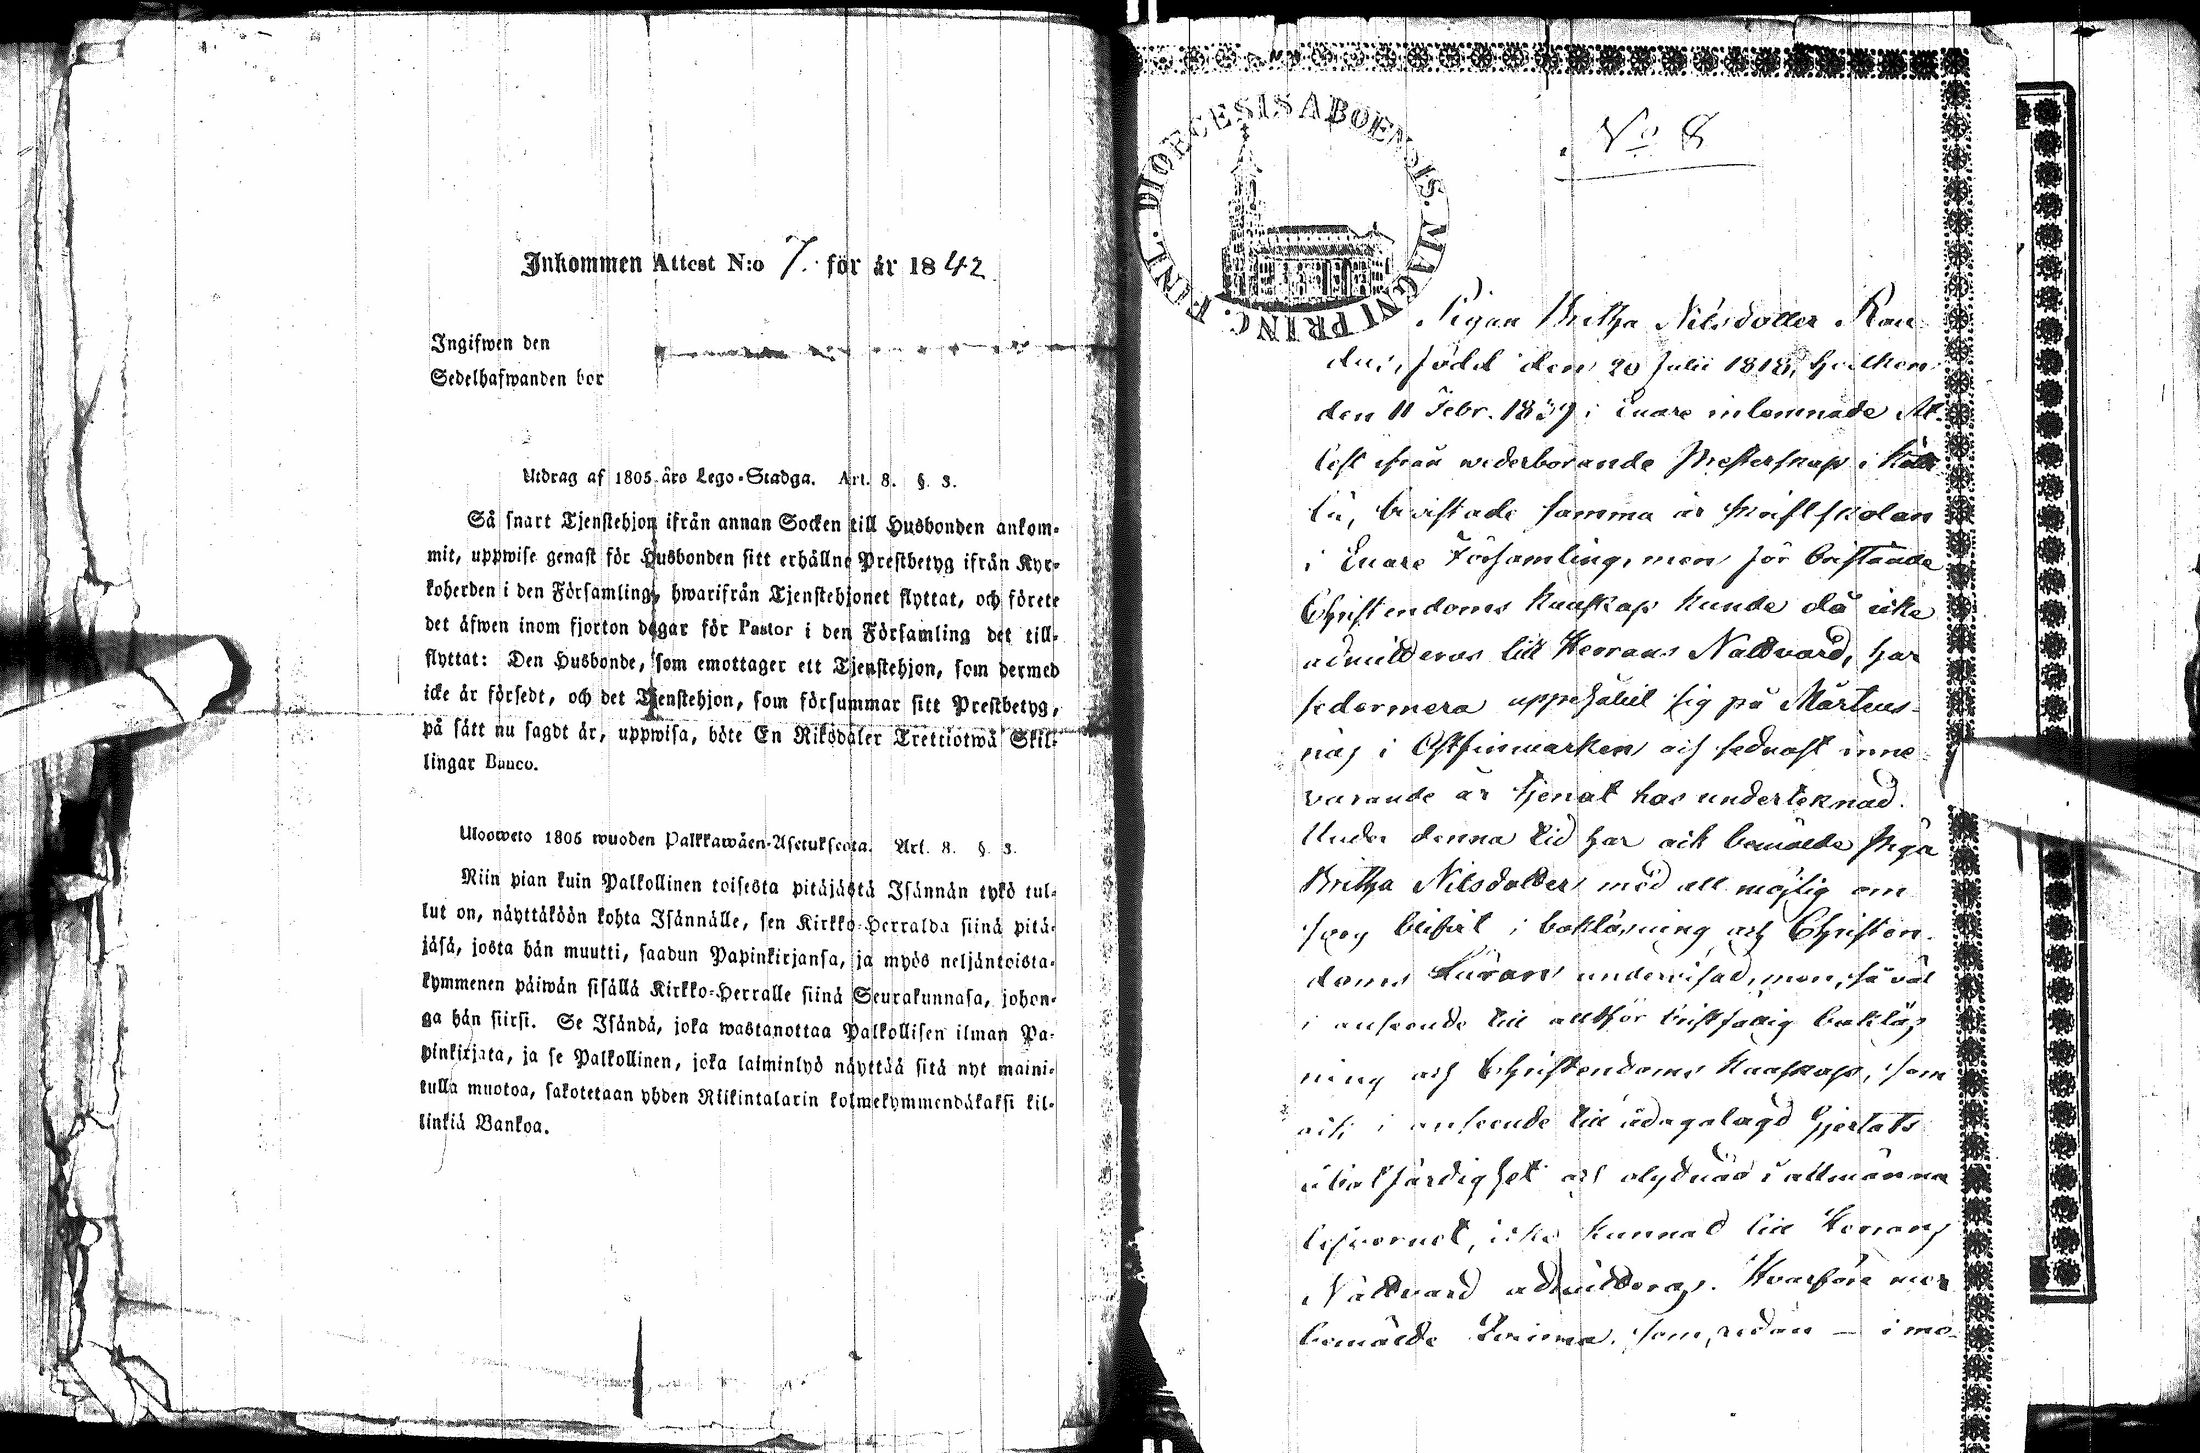 Inkommen Attest N:o 7. för år 1842.
Ingifwen den
Sedelhafwanden bor
Utdrag af 1805 års Lego-Stadga. Art. 8. §. 3.
Så snart Tjenstehjon ifrån annan Socken till Husbonden ankom-
mit, uppwise genast för Husbonden sitt erhållne Prestbetyg ifrån Kyr-
koherden i den Församling, hwarifrån Tjenstehjonet flyttat, och förete
det äfwen inom fjorton dagar för Pastor i den Församling det till-
flyttat: Den Husbonde, som emottager ett Tjenstehjon, som dermed
icke är försedt, och det Tjenstehjon, som försummar sitt Prestbetyg,
på sätt nu sagdt är, uppwisa, böte En Riksdaler Trettiotwå Skil-
lingar Banco.
Ulosweto 1805 wuoden Palkkawäen-Asetuksesta. Art. 8. §. 3.
Niin pian kuin Palkollinen toisesta pitäjästä Isännän tykö tul-
lut on, näyttäköön kohta Isännälle, sen Kirkko-Herralda siinä pitä-
jäsä, josta hän muutti, saadun Papinkirjansa, ja myös neljäntoista-
kymmenen päiwän sisällä Kirkko-Herralle siinä Seurakunnasa, johon-
ga hän siirsi. Se Isändä, joka wastanottaa Palkollisen ilman Pa-
pinkirjata, ja se Palkollinen, joka laiminlyö näyttää sitä nyt maini-
tulla muotoa, sakotetaan yhden Riikintalarin kolmekymmendäkaksi kil-
linkiä Bankoa.
DIOECESIS ABOENSIS. MAGNI PRINC. FINL.
No 8
Pigan Britha Nilsdotter Rau
dus, född den 20 Julii 1818, hvilken
den 11 Febr. 1839 i Enare inlemnade At-
test från vederbörande Presterskap i
bevistade samma år skriftskolan
i Enare Församling, men för bristande
Christendoms kunskap kunde då icke
admitteras till Herrans Nattvard, har
sedermera uppehållit sig på Mårtens-
näs i Ostfinmarken och sednast inne-
varande år tjenat hos undertecknad.
Under denna tid har ock bemälde Piga
Britha Nilsdotter med all möjlig om
sorg blifvit i bokläsning och Christen-
doms Läran undervisad, men, så väl
i anseende till alltför bristfällig bokläs
ning och Christendoms Kunskap, som
ock i anseende till ådagalagd hjertats
obotfärdighet och olydnad i allmänna
lefvernet, icke kunnad till Herrans
Nattvard admitteras. Hvarföre mer
bemälde Qvinna, som, redan — i mo-